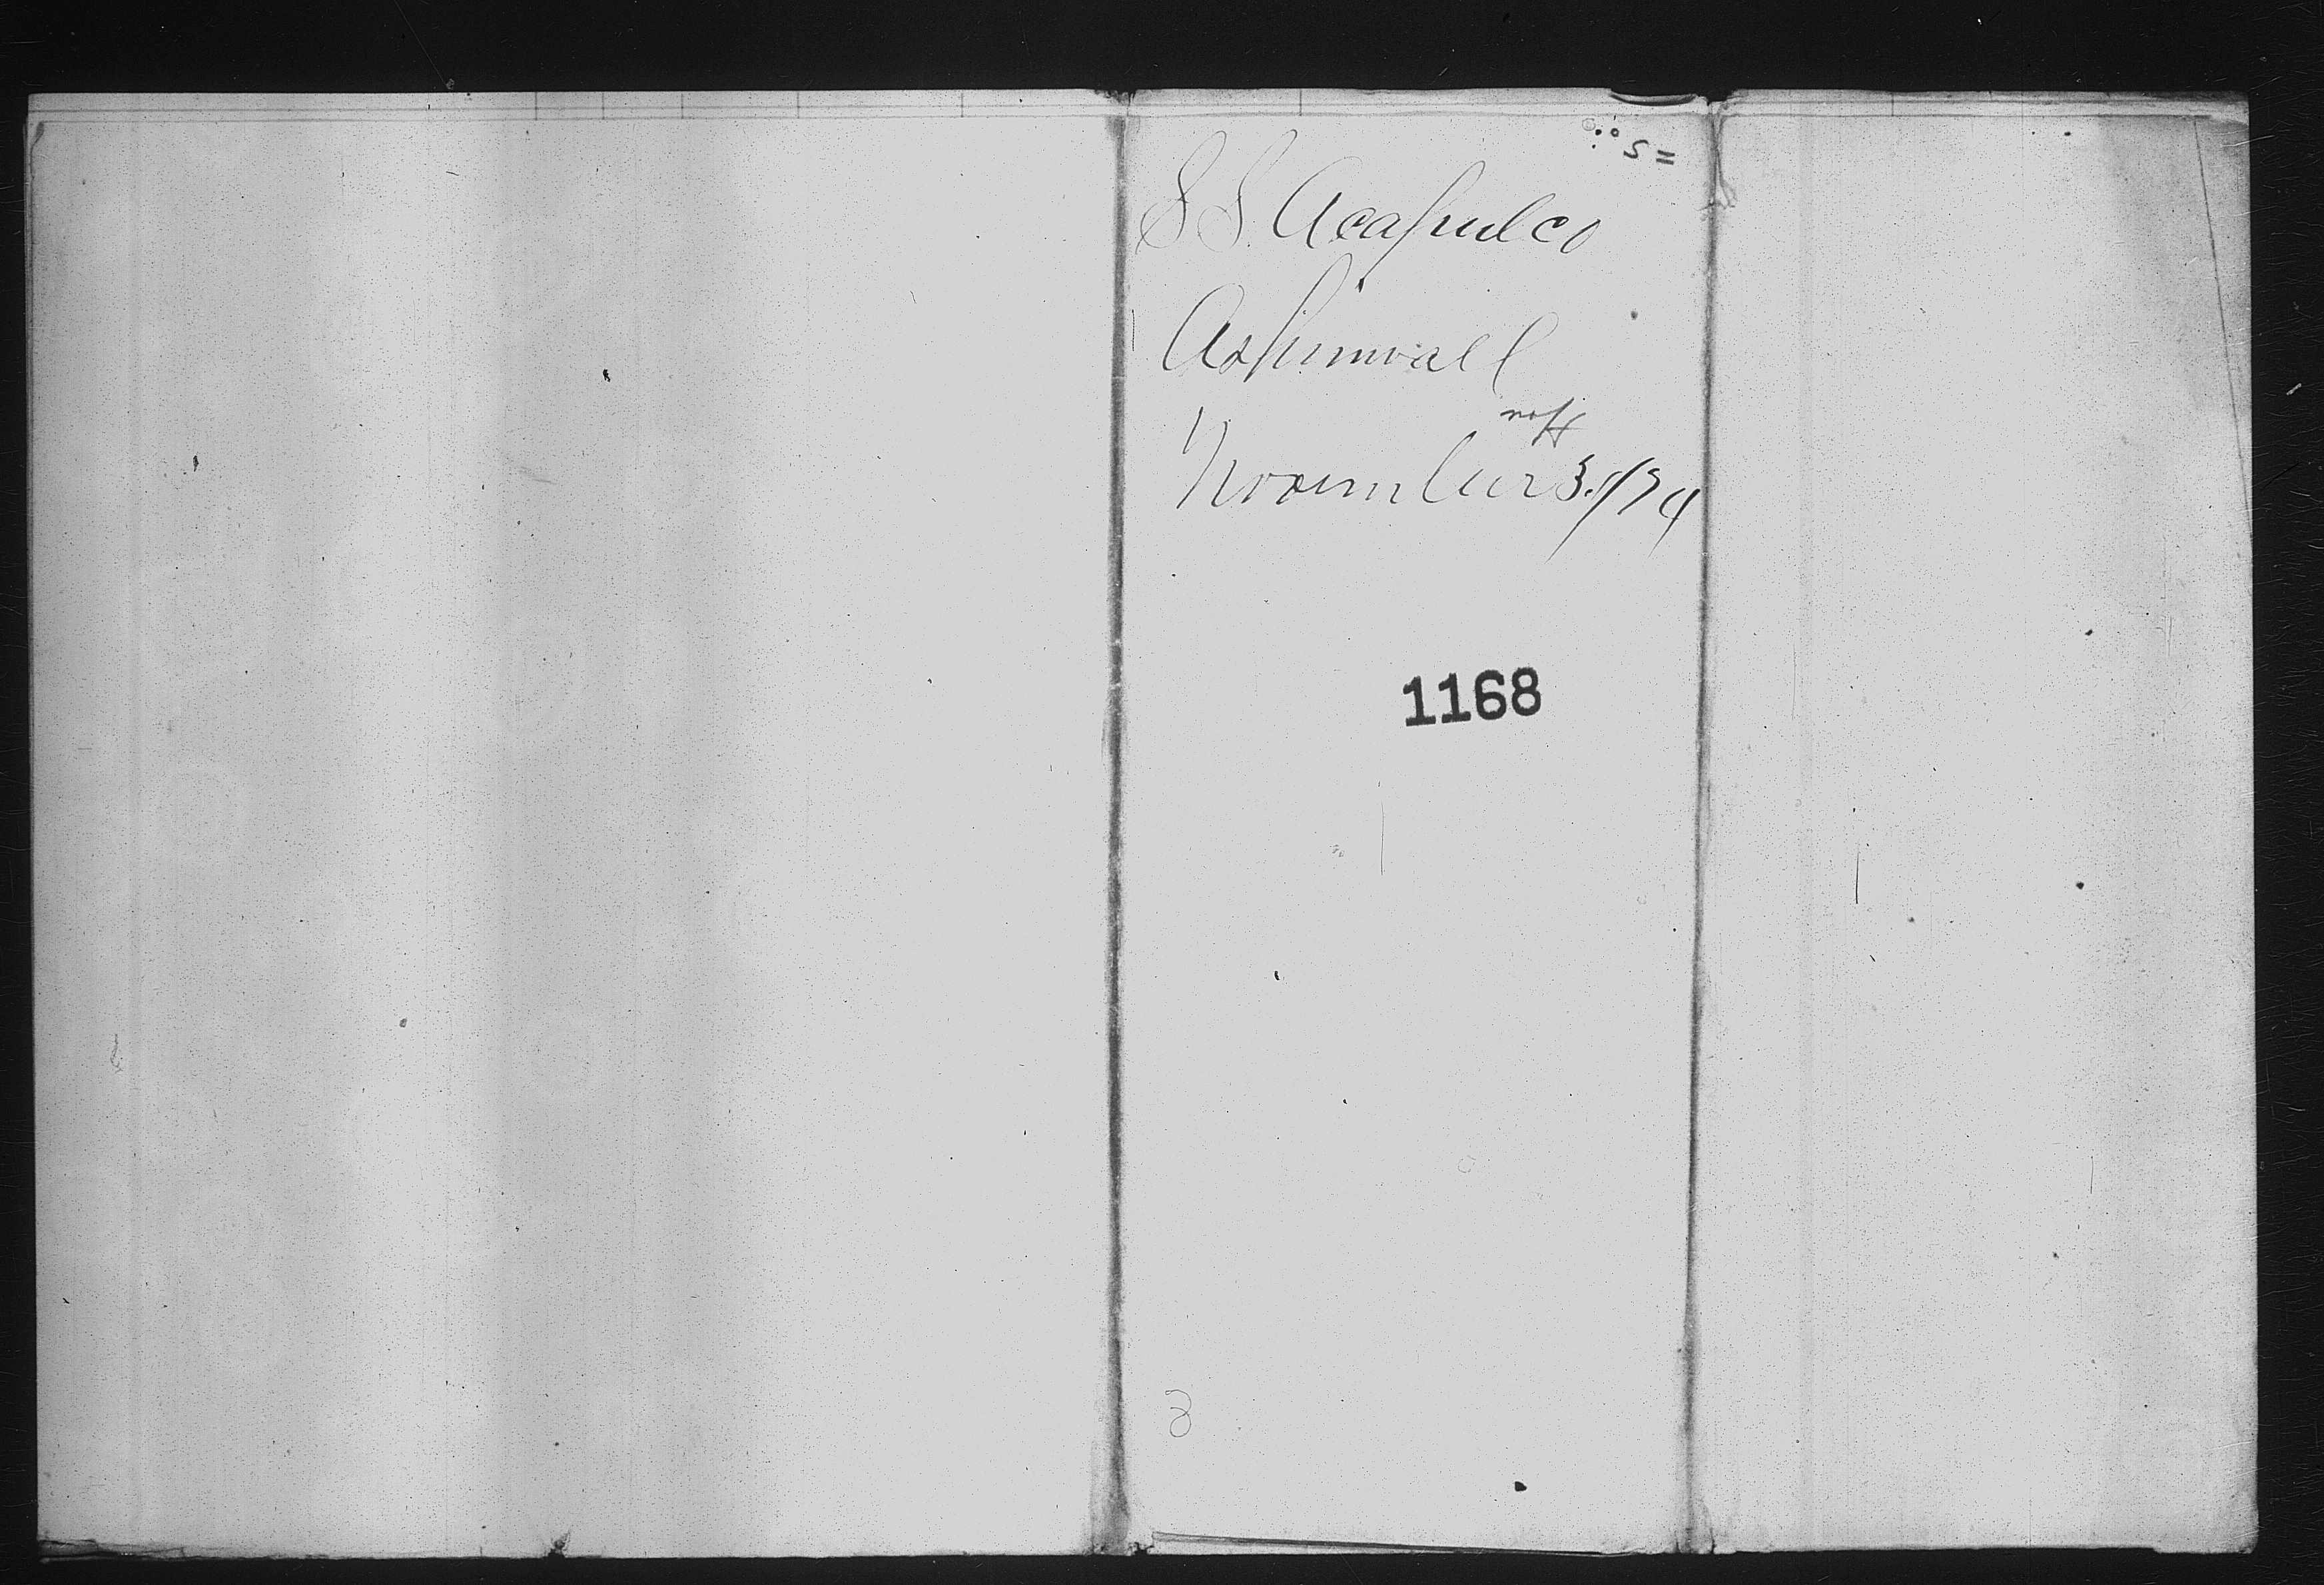 S S. Acapulco
Aspinwall
November 3./74
1168